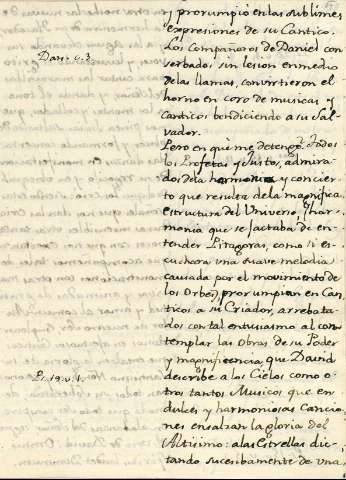 y prorumpió en las sublimes
expresiones de su Cantico.
Los Compañeros de Daniel con
Dan. c. 3.
serbados, sin lesion enmedio
de las llamas, convirtieron el
horno en coro de musicas, y
Canticos bendiciendo a su Sal-
vador.
Pero en qué me detengo? Todos
los Profetas y Justos, admira-
dos de la harmonia y concier
to que resulta de la magnifica
estructura del Universo, (har-
monia que se jactaba de en-
tender Pitagoras, como si es-
cuchara una suave melodia
causada por el movimiento de
los Orbes) prorumpian en Can
ticos a su Criador, arrebata
dos con tal entusiasmo al con
templar las Obras de su Poder
y magnificencia, que David
Ps. 19. v. 1.
describe a los Cielos como o
tros tantos Musicos que en
dulces y harmoniosas Cancio
nes ensalzan la gloria del
Altissimo: a las Estrellas dic-
tando sucesibamente de una